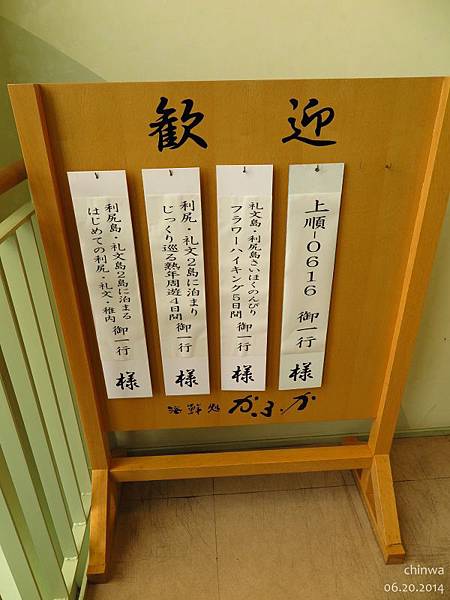 歓迎
上順-0616 御一行 様
礼文島・利尻島さいほくのんびり
フラワーハイキング5日間 御一行 様
利尻・礼文2島に泊まり
じっくり巡る熟年周遊4日間 御一行 様
利尻島・礼文島2島に泊まる
はじめての利尻・礼文・稚内 御一行 様
海鮮処 かふか
chinwa
06.20.2014